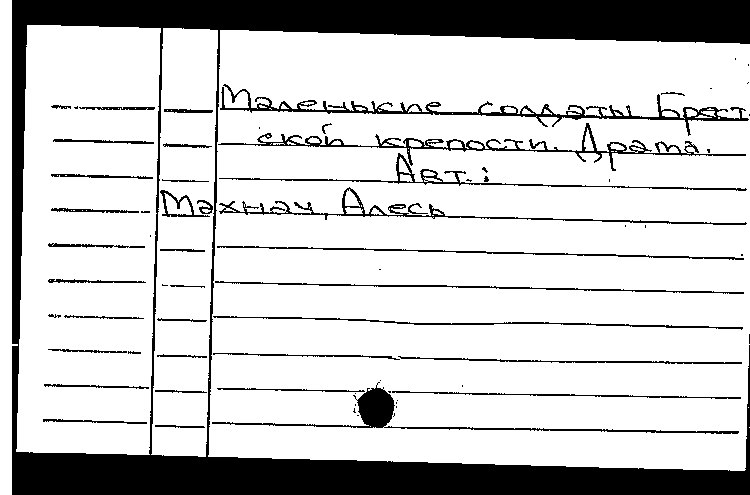 Маленькие солдаты Брест
ской крепости. Драма.
Авт.:
Махнач, Алесь